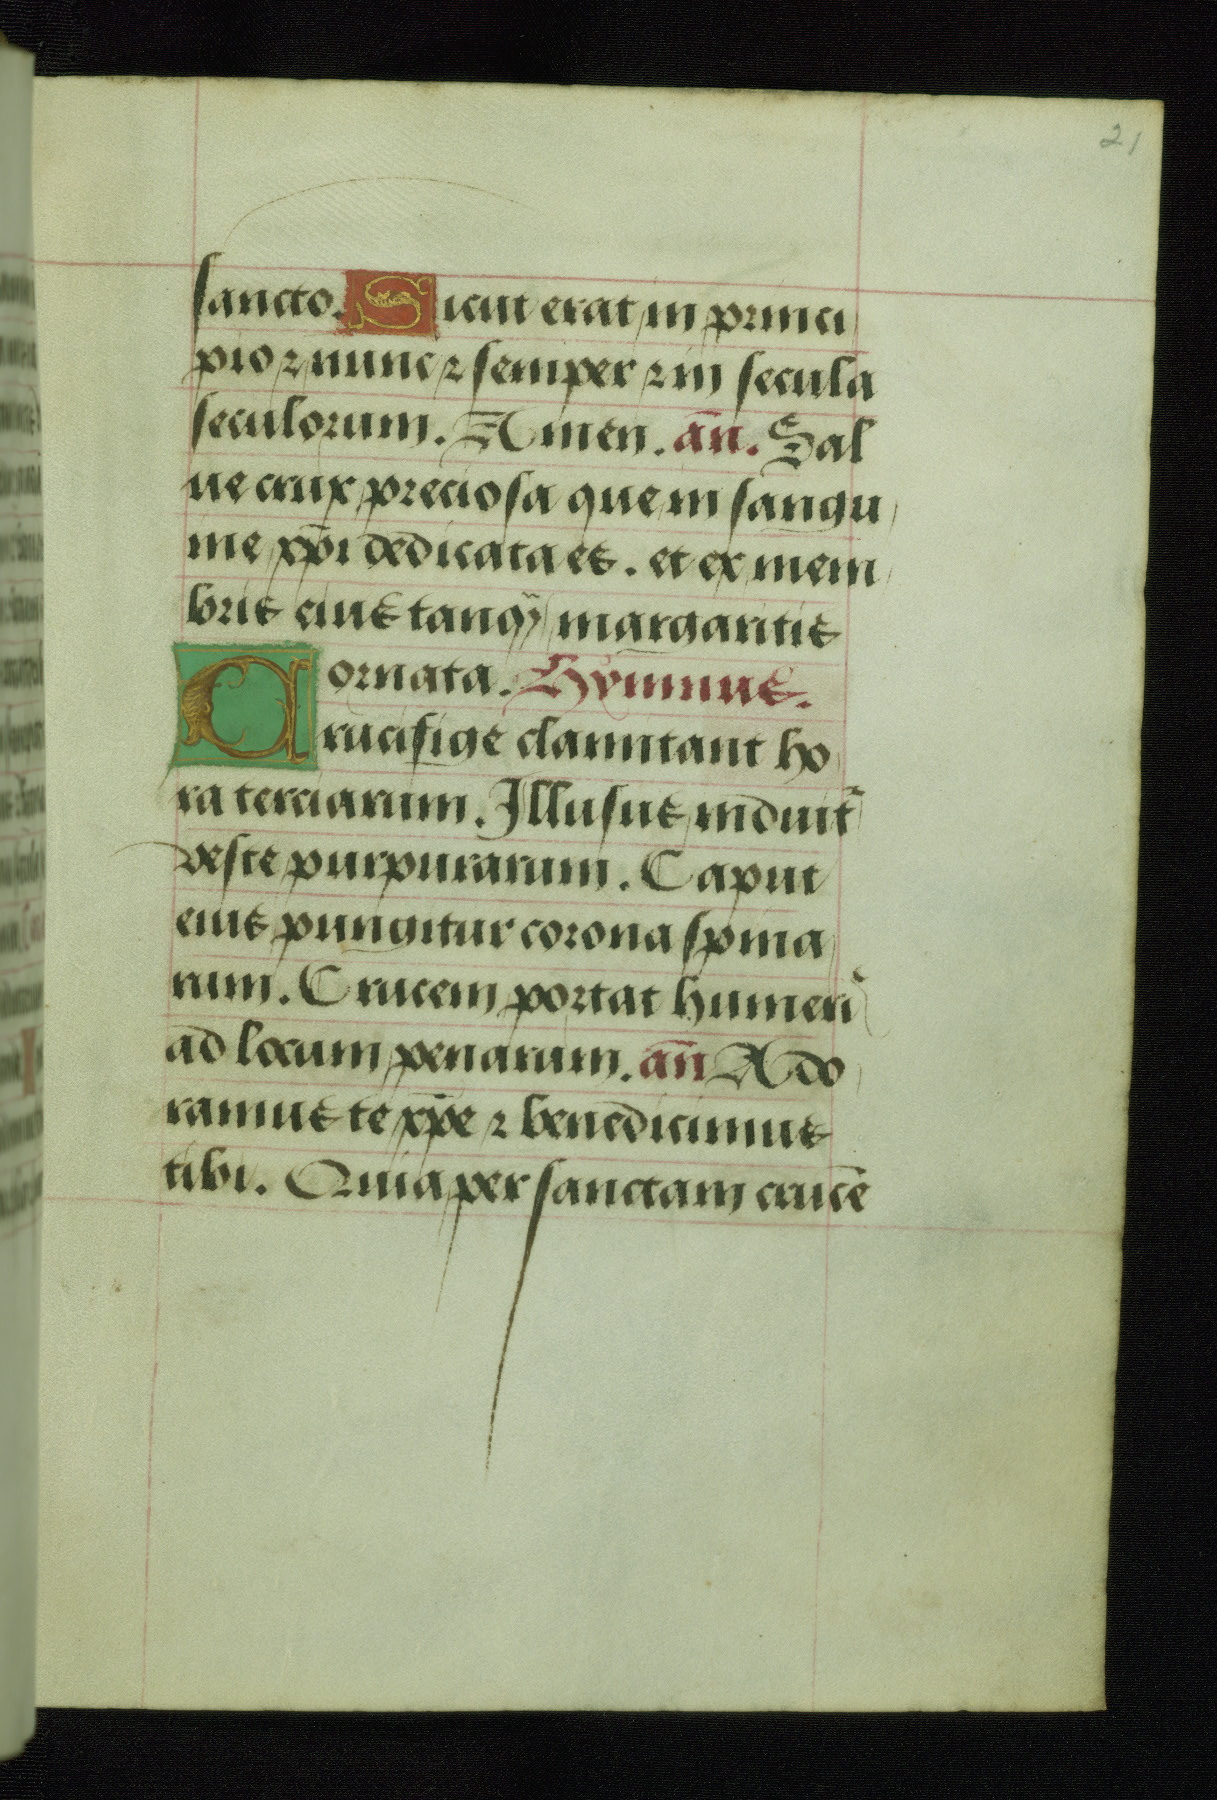 21
sancto. Sicut erat in princi
pio ⁊ nunc ⁊ semper ⁊ in secula
seculorum. Amen. an̄. Sal
ue crux preciosa que in sangu
ine xp̄i dedicata es. et ex mem
bris eius tanq̃ margaritis
ornata. Hymnus.
Crucifige clamitant ho
ra terciarum. Illusus induit᷑
veste purpurarum. Caput
eius pungitur corona spina
rum. Crucem portat humeri᷒
ad locum penarum. an̄ Ado
ramus te xp̄e ⁊ benedicimus
tibi. Quia per sanctam crucē